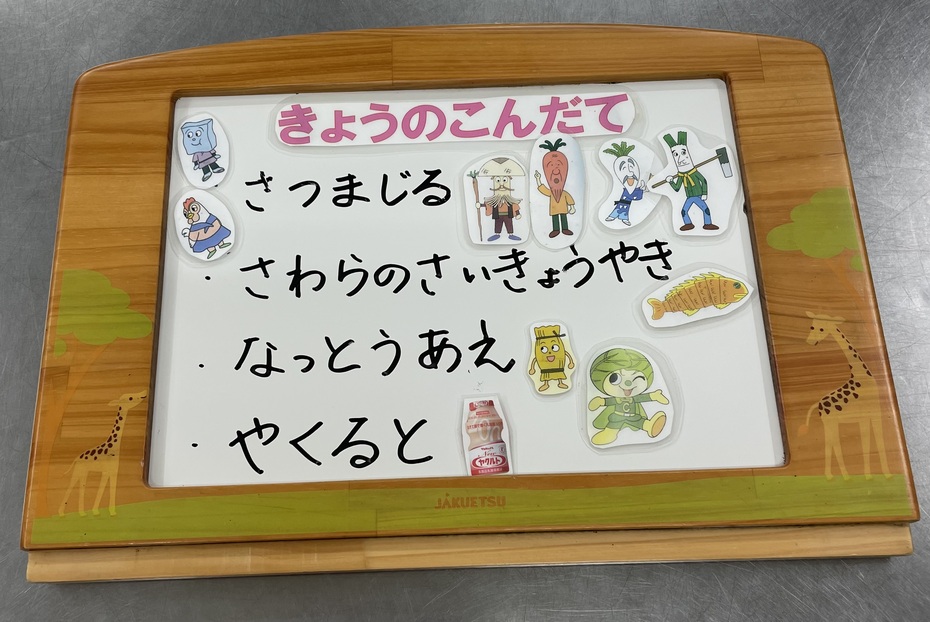 きょうのこんだて
さつまじる
・さわらのさいきょうやき
・なっとうあえ
・やくると
ヤクルト
JAKUETSU